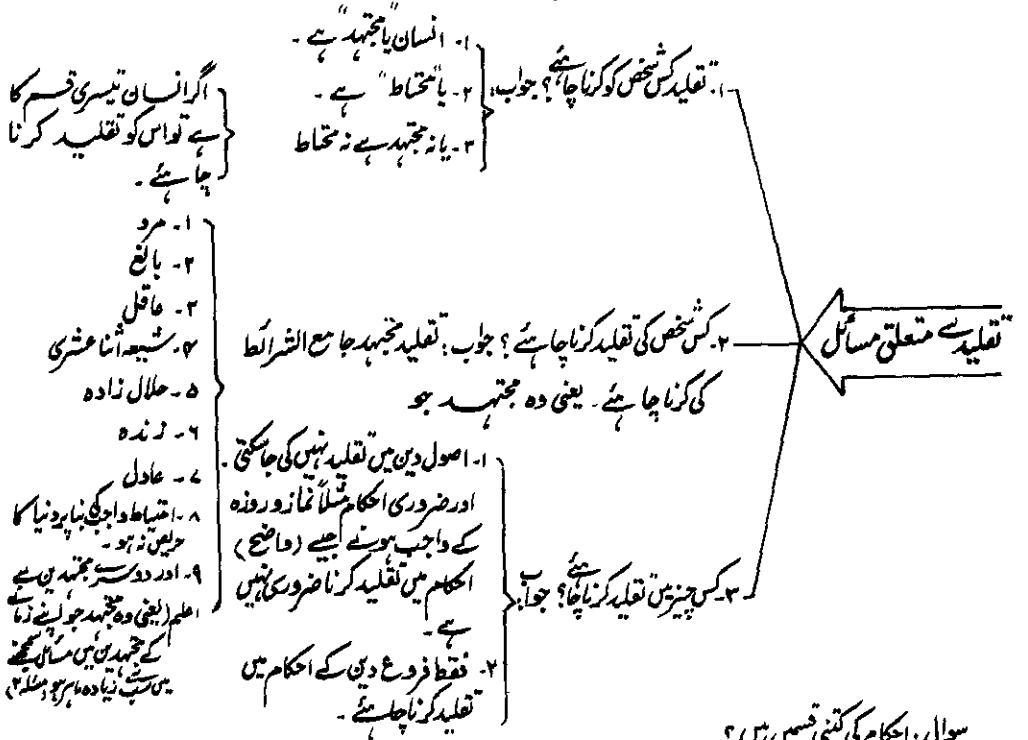 تقلید سے متعلق مسائل
۱۔ تقلید کس شخص کو کرنا چاہئے؟ جواب:
۱۔ انسان یا "مجتہد" ہے ۔
۲۔ یا "محتاط" ہے ۔
۳۔ یا نہ مجتہد ہے نہ محتاط
اگر انسان تیسری قسم کا
ہے تو اس کو تقلید کرنا
چاہئے ۔
۲۔ کس شخص کی تقلید کرنا چاہئے ؟ جواب : تقلید مجتہد جامع الشرائط
کی کرنا چاہئے ۔ یعنی وہ مجتہد جو
۱۔ مرد
۲۔ بالغ
۳۔ عاقل
۴۔ شیعہ اثنا عشری
۵۔ حلال زادہ
۶۔ زندہ
۷۔ عادل
۸۔ احتیاط واجب کی بنا پر دنیا کا
حریص نہ ہو ۔
۹۔ اور دوسرے مجتہدین سے
اعلم (یعنی وہ مجتہد جو اپنے زمانے
کے مجتہدین میں مسائل سمجھنے
میں سب سے زیادہ ماہر ہو (مسئلہ ۲)
۳۔ کس چیز میں تقلید کرنا چاہئے؟ جواب
۱۔ اصول دین میں تقلید نہیں کی جا سکتی ۔
اور ضروری احکام مثلاً نماز و روزہ
کے واجب ہونے جیسے (واضح)
احکام میں تقلید کرنا ضروری نہیں
ہے ۔
۲۔ فقط فروع دین کے احکام میں
تقلید کرنا چاہئے ۔
سوال : احکام کی کتنی قسمیں ہیں ؟